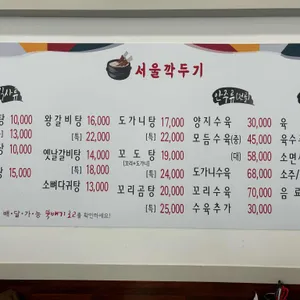 서울깍두기
식사류
안주류(전골)
탕 10,000
[특] 13,000
탕 10,000
[특]
탕 15,000
왕갈비탕 16,000
[특] 22,000
옛날갈비탕 14,000
[특] 18,000
소뼈다귀탕 13,000
도가니탕 17,000
[특] 22,000
꼬도탕 19,000
[꼬리+도가니]
[특] 24,000
꼬리곰탕 20,000
[특] 25,000
양지수육 30,000
모듬수육(중) 45,000
(대) 58,000
도가니수육 68,000
꼬리수육 70,000
수육추가 30,000
육
육수
소면
소주/
음료
배·달·가·능 뚝배기로고를 확인하세요!